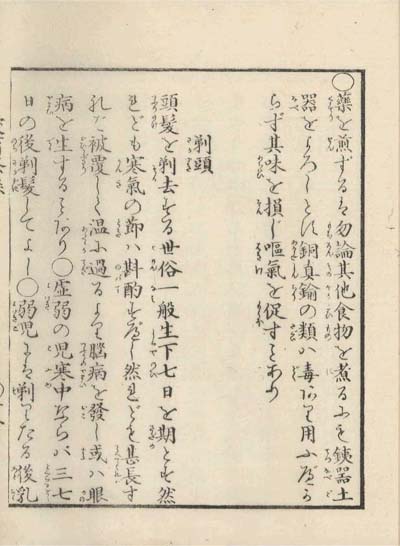 〇藥を煎ずるは勿論其他食物を煮るにも鉄器土
器をよろしとす銅真鍮の類ハ毒あり用ふべか
らず其味を損じ嘔氣を促すことあり
剃頭
頭髪を剃去する世俗一般生下七日を期とす然
れども寒氣の節ハ斟酌すべし然れども甚長す
れバ被覆して温に過るより腦病を發し或ハ眼
病を生することあり〇虚弱の児寒中ならバ三七
日の後剃髪してよし〇弱児は剃りたる後乳